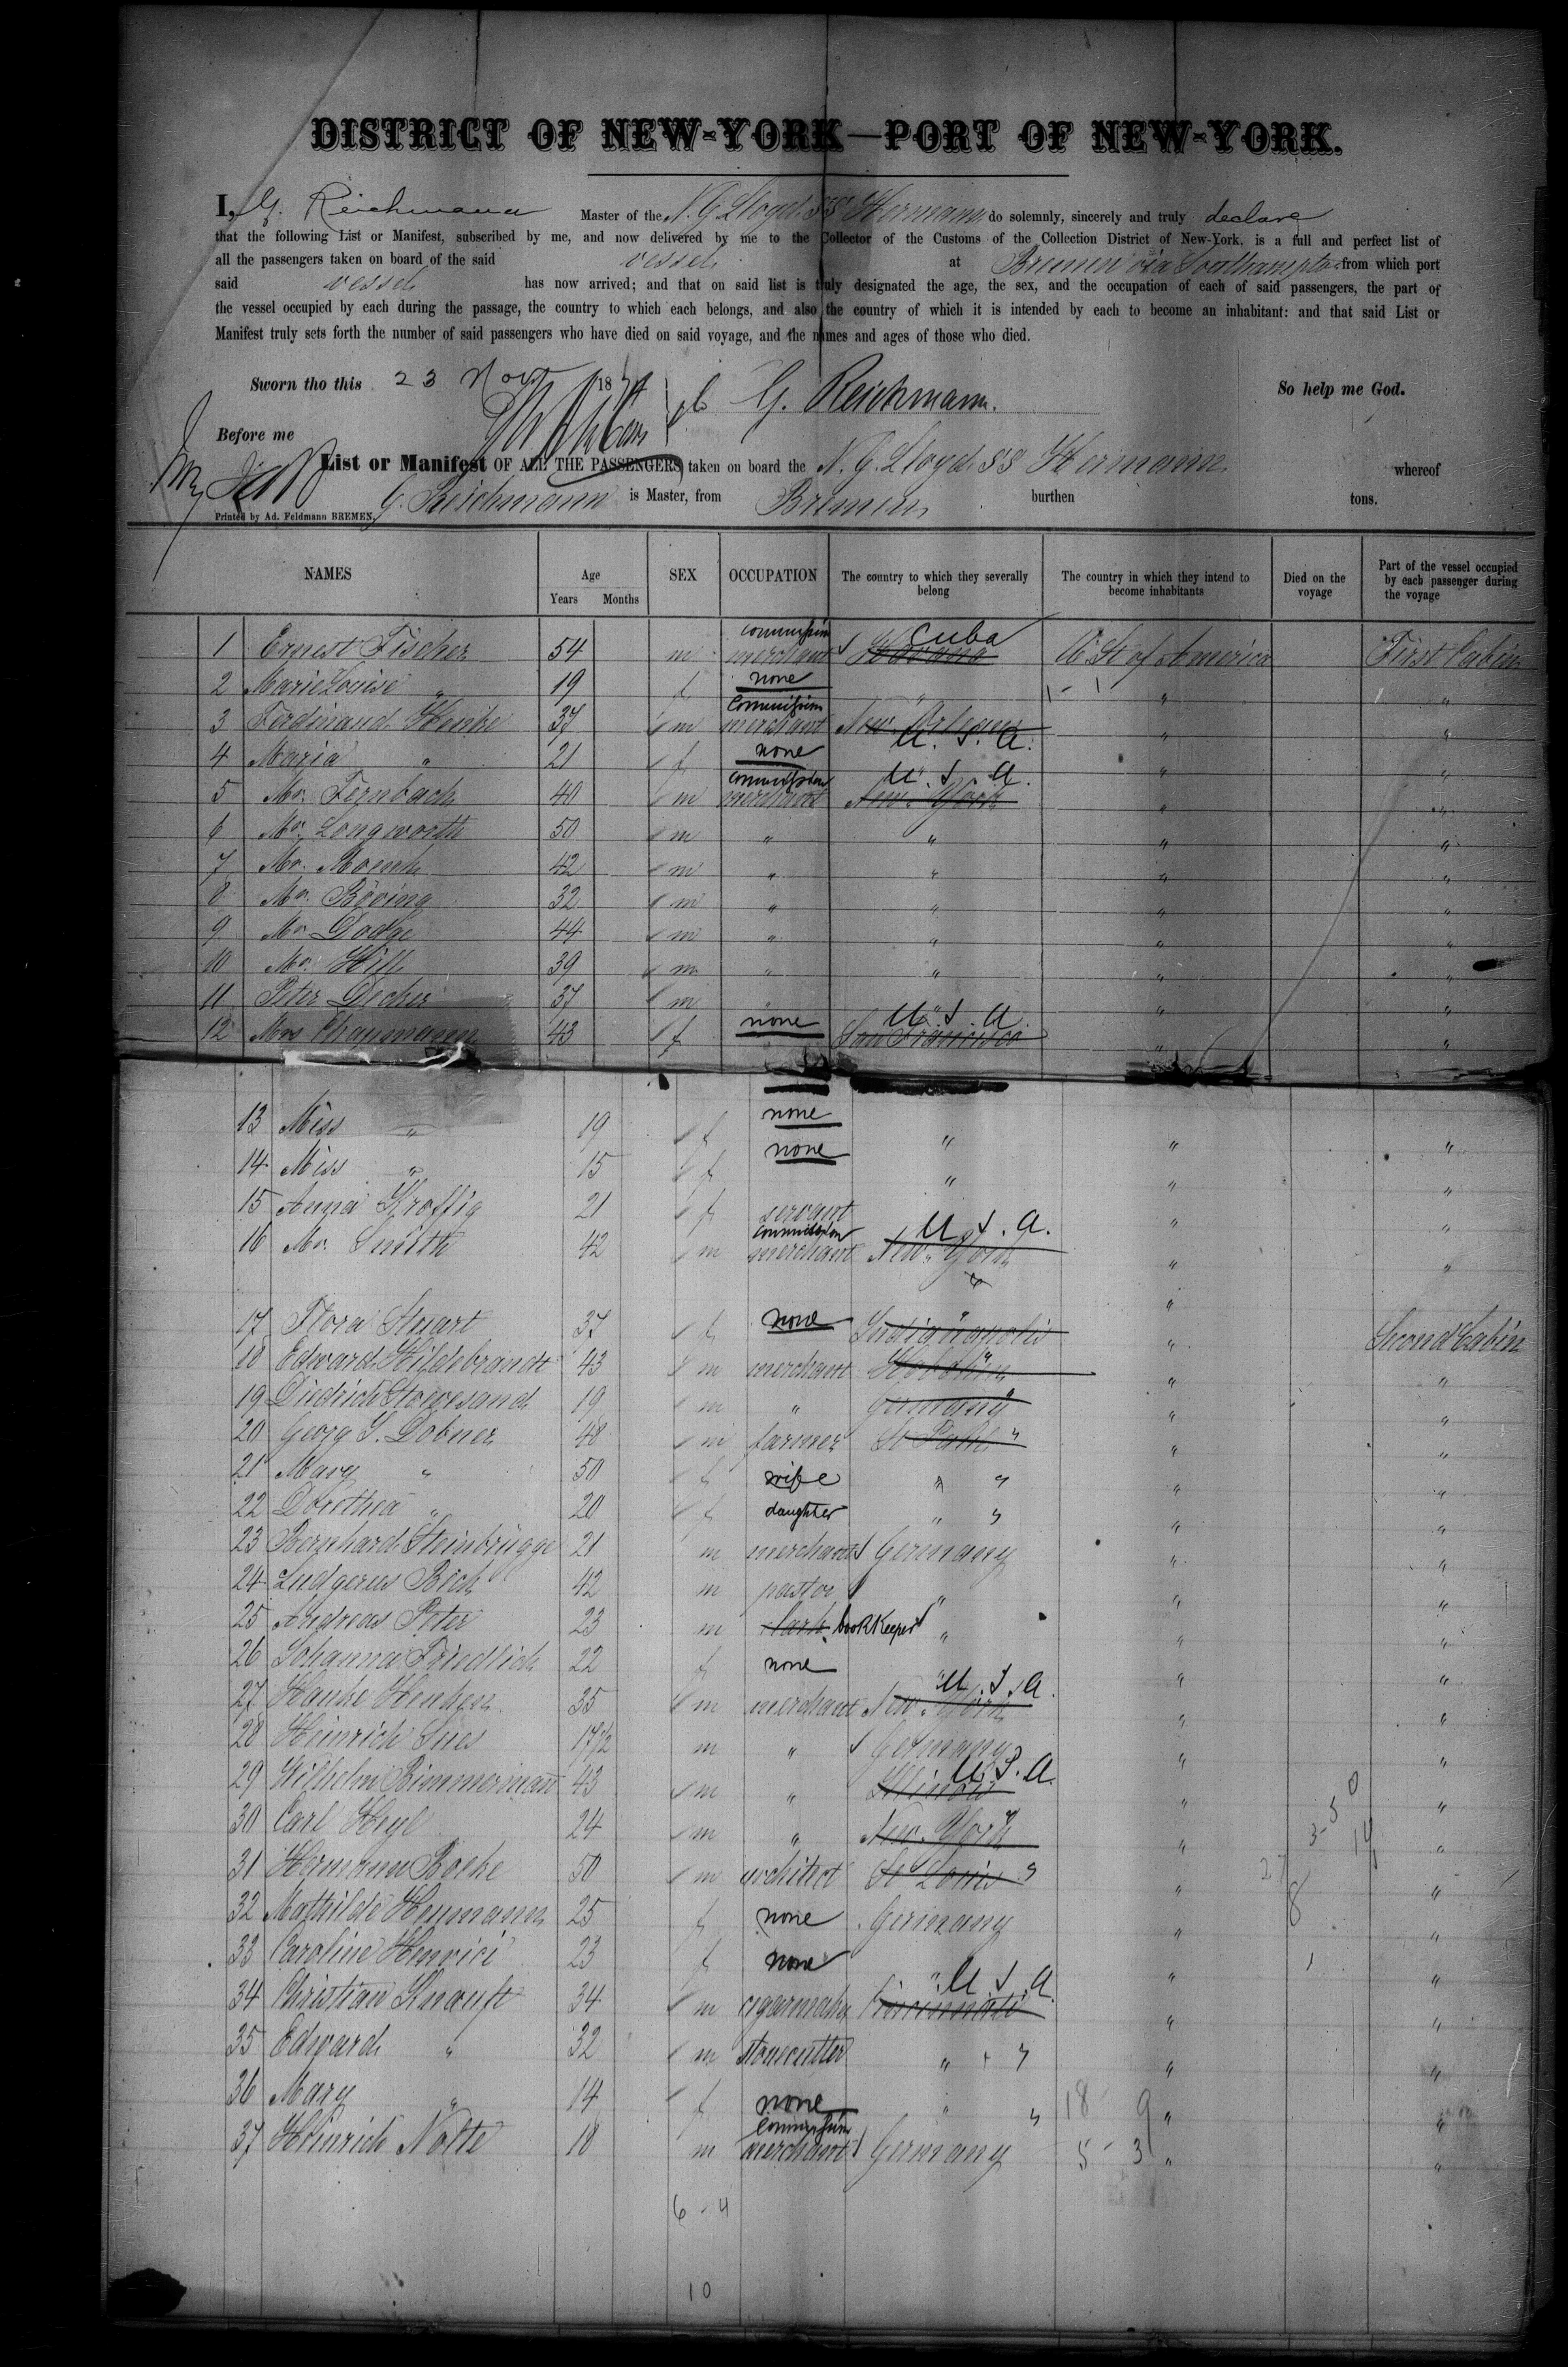 DISTRICT OF NEW-YORK—PORT OF NEW-YORK.
I, G. Reichmann Master of the N. G. Lloyd. SS Hermann do solemnly, sincerely and truly declare
that the following List or Manifest, subscribed by me, and now delivered by me to the Collector of the Customs of the Collection District of New-York, is a full and perfect list of
all the passengers taken on board of the said vessel at Bremen via Southampton from which port
said vessel has now arrived; and that on said list is truly designated the age, the sex, and the occupation of each of said passengers, the part of
the vessel occupied by each during the passage, the country to which each belongs, and also the country of which it is intended by each to become an inhabitant: and that said List or
Manifest truly sets forth the number of said passengers who have died on said voyage, and the names and ages of those who died.
Sworn tho this 23 Nov 18 G. Reichmann. So help me God.
Before me
List or Manifest OF ALL THE PASSENGERS taken on board the N. G. Lloyd. SS Hermann whereof
G. Reichmann is Master, from Bremen, burthen tons.
Printed by Ad. Feldmann BREMEN.
NAMES Age Years Months SEX OCCUPATION The country to which they severally belong The country in which they intend to become inhabitants Died on the voyage Part of the vessel occupied by each passenger during the voyage
1 Ernest Fischer 54 m commission merchant Havana Cuba U. St of America First Cabin
2 Marie Louise " 19 f none " " "
3 Ferdinand Henke 37 m commission merchant New Orleans U. S. A. " "
4 Maria " 21 f none " " "
5 Mr. Fernbach 40 m commission merchant New York U. S. A. " "
6 Mr. Longworth 50 m " " " "
7 Mr. 42 m " " " "
8 Mr. Böving 32 m " " " "
9 Mr. Dodge 44 m " " " "
10 Mr. Hill 39 m " " " "
11 Peter Decker 37 m " " " "
12 Mrs Chapmann 43 f none San Francisco U. S. A. " "
13 Miss " 19 f none " " "
14 Miss " 15 f none " " "
15 Anna 21 f servant " "
16 Mr. Smith 42 m commission merchant New York U. S. A. " "
17 Flora Stuart 37 f none Indianapolis " " Second Cabin
18 Edward Hildebrandt 43 m merchant " "
19 Diedrich Stovesand 19 m " Germany " "
20 Georg S. Dobner 48 m farmer St Paul " " "
21 Mary " 50 f wife " " " "
22 Dorothea " 20 f daughter " " " "
23 Bernhard Steinbrügge 21 m merchant Germany " "
24 Ludgerus 42 m pastor " " "
25 Andreas Peter 23 m clark bookkeeper " " "
26 Johanna Friedlich 22 f none " " "
27 Hanke Henken 35 m merchant New York U. S. A. " "
28 Heinrich 17 1/2 m " Germany " "
29 Wilhelm Bimmermann 43 m " Illinois U. S. A. " "
30 Carl Heyl 24 m " New York " " "
31 Hermann 50 m architect St Louis " " "
32 Mathilde Heumann 25 f none Germany " "
33 Caroline Henrici 23 f none " " "
34 Christian Knauft 34 m cigarmaker Cincinnati U. S. A. " "
35 Edward " 32 m stonecutter " " " "
36 Mary " 14 f none " " " "
37 Heinrich Nolte 18 m commission merchant Germany " "
18 - 9
5 - 3
6 - 4
10